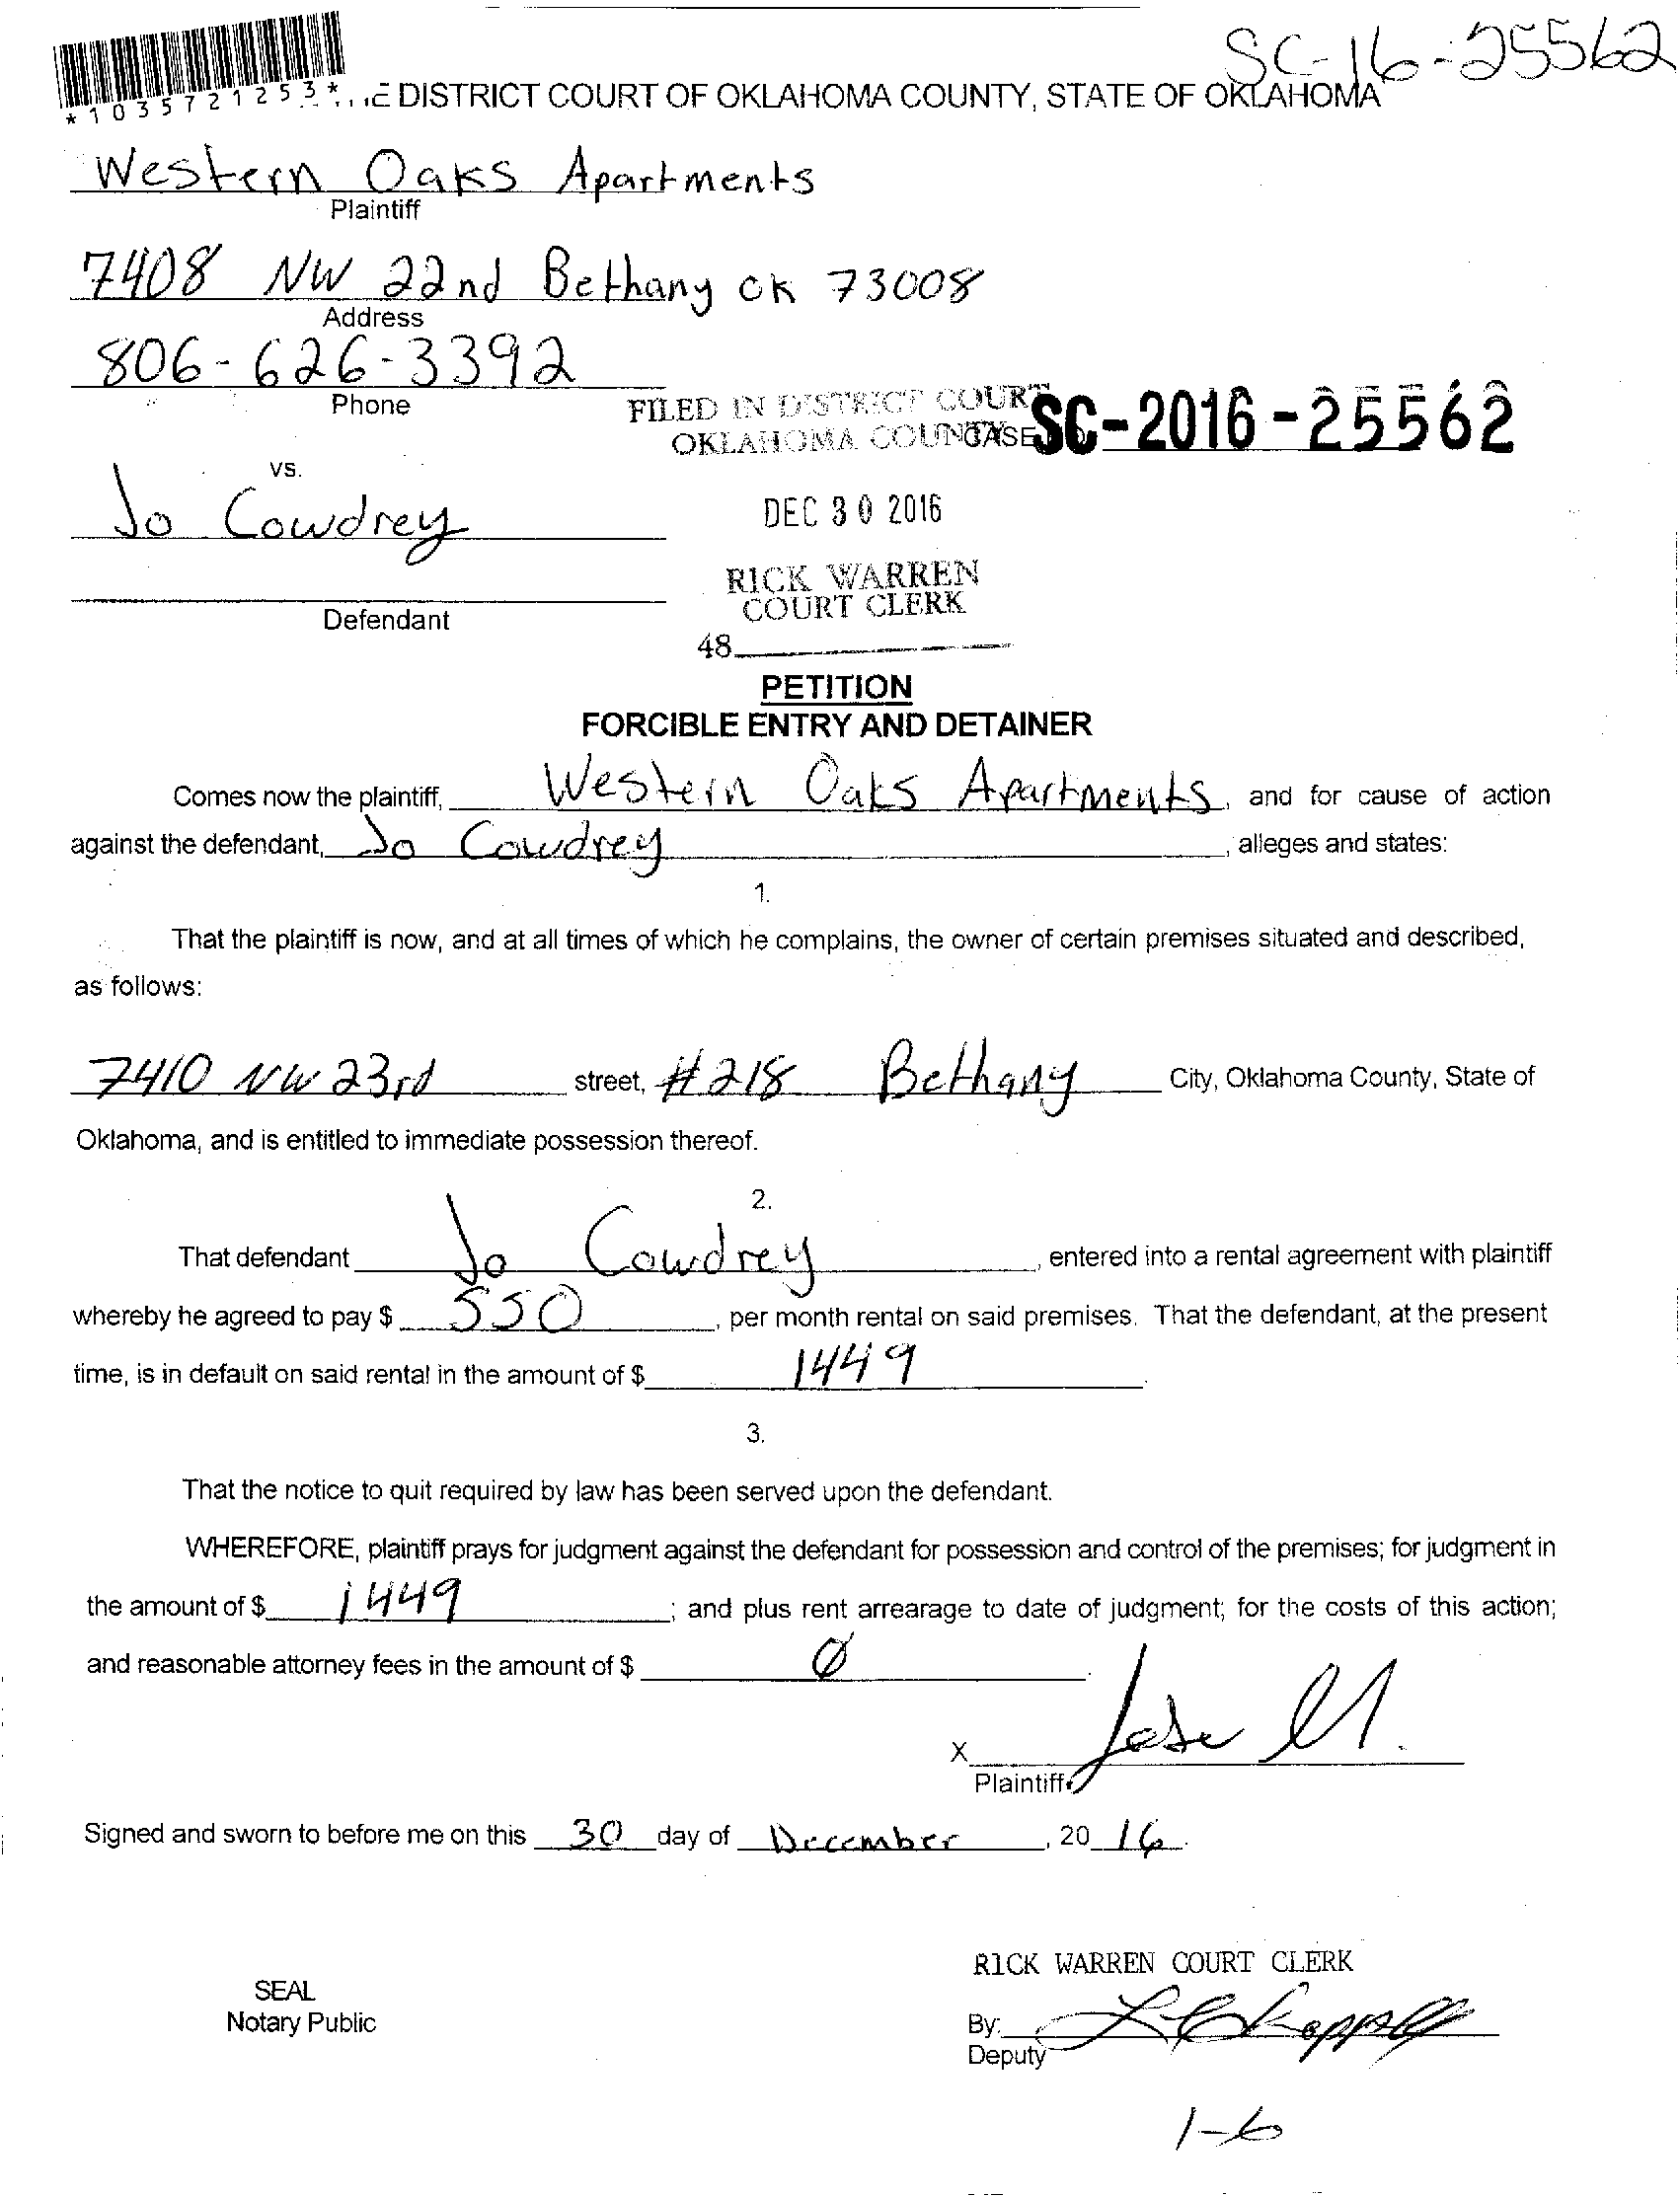 SC-16-25562
*1035721253* E DISTRICT COURT OF OKLAHOMA COUNTY, STATE OF OKLAHOMA
Western Oaks Apartments
Plaintiff
7408 NW 22nd Bethany OK 73008
Address
806-626-3392
Phone
FILED IN DISTRICT COURT
OKLAHOMA COUNTY CASE SC-2016-25562
vs.
Jo Cowdrey
DEC 30 2016
RICK WARREN
COURT CLERK
Defendant
48
PETITION
FORCIBLE ENTRY AND DETAINER
Comes now the plaintiff, Western Oaks Apartments, and for cause of action
against the defendant, Jo Cowdrey, alleges and states:
1.
That the plaintiff is now, and at all times of which he complains, the owner of certain premises situated and described,
as follows:
7410 NW 23rd street, #218 Bethany City, Oklahoma County, State of
Oklahoma, and is entitled to immediate possession thereof.
2.
That defendant Jo Cowdrey, entered into a rental agreement with plaintiff
whereby he agreed to pay $ 550, per month rental on said premises. That the defendant, at the present
time, is in default on said rental in the amount of $ 1449.
3.
That the notice to quit required by law has been served upon the defendant.
WHEREFORE, plaintiff prays for judgment against the defendant for possession and control of the premises; for judgment in
the amount of $ 1449; and plus rent arrearage to date of judgment; for the costs of this action;
and reasonable attorney fees in the amount of $ Ø.
X
Plaintiff
Signed and sworn to before me on this 30 day of December, 20 16.
RICK WARREN COURT CLERK
SEAL
Notary Public
By:
Deputy
1-6